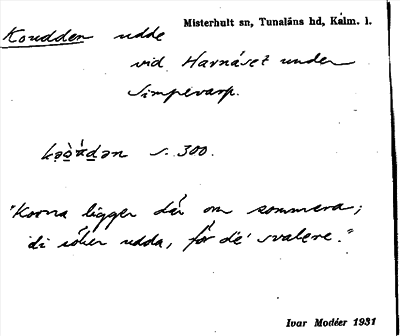 Misterhult sn, Tunaläns hd, Kalm. l.
Koudden udde
vid Harnäset under
Simpevarp.
s. 300.
"Korna ligger där om sommara;
di söker udda, för de' svalere."
Ivar Modéer 1931